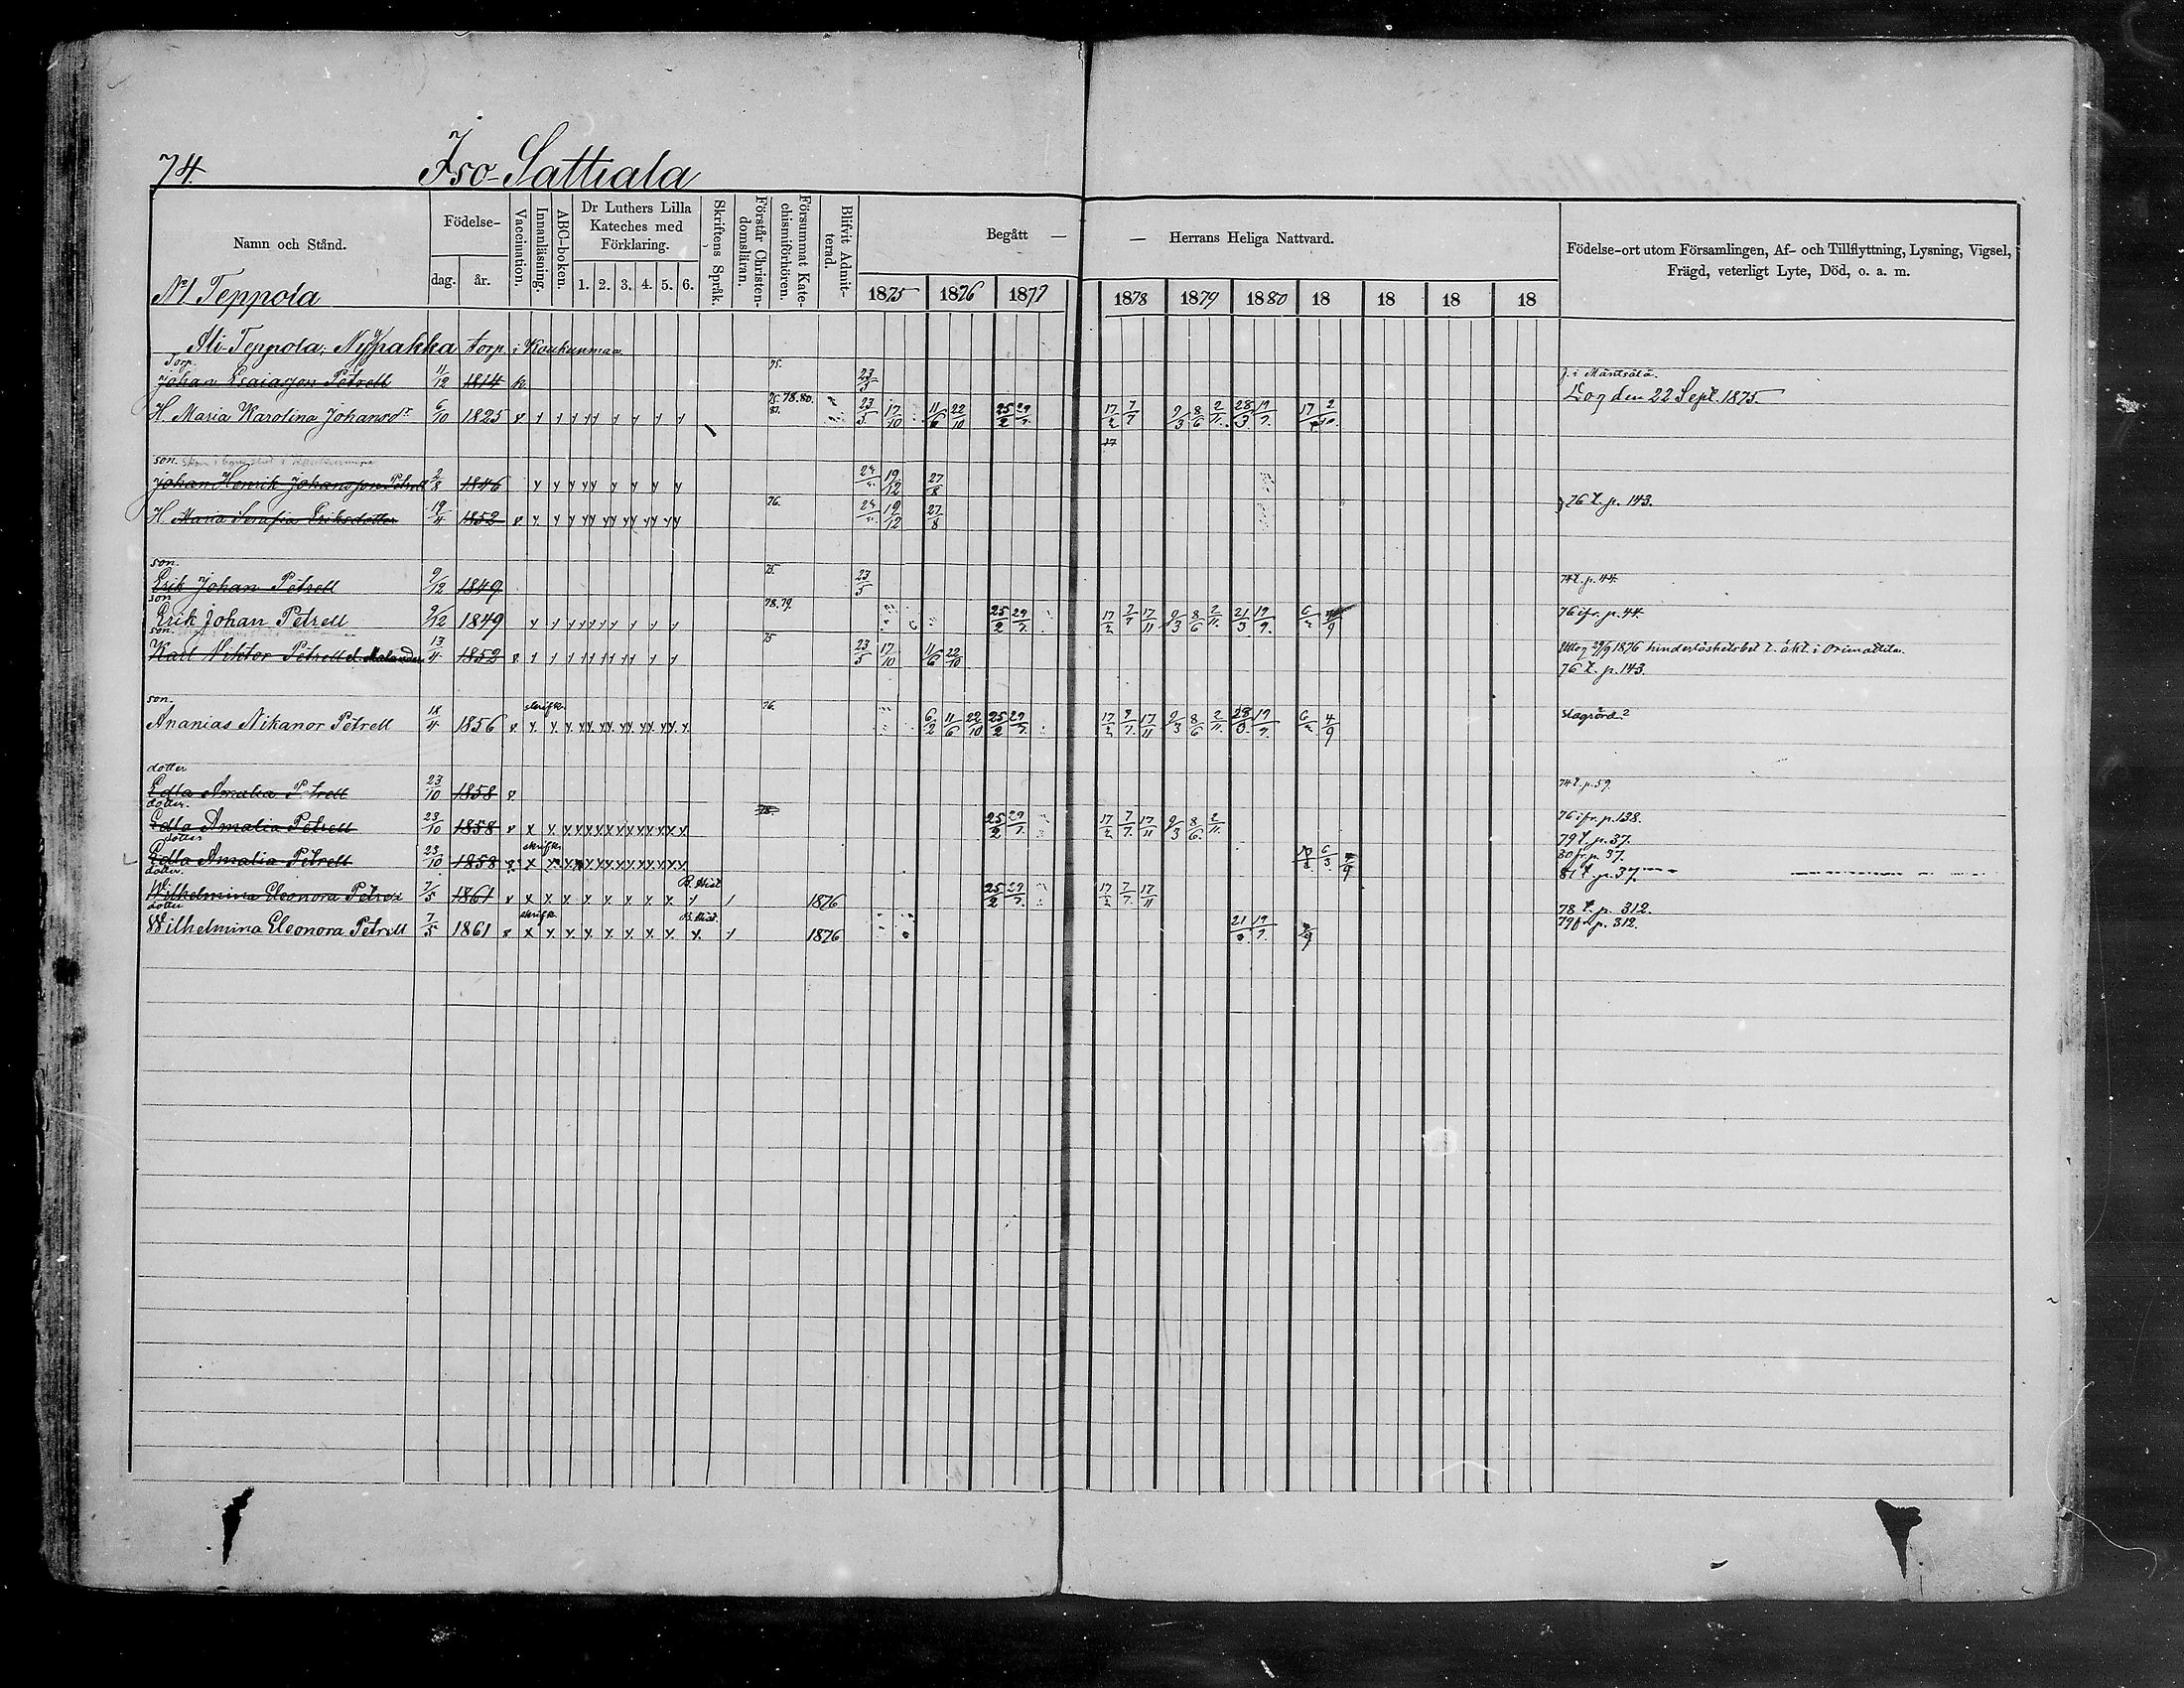 74.
Iso-Sattiala
Namn och Stånd.
Födelse-
dag.
år.
Vaccination.
Innanläsning.
ABC-boken.
Dr Luthers Lilla Kateches med Förklaring.
1. 2. 3. 4. 5. 6.
Skriftens Språk.
Förstår Christendomsläran.
Försummat Katechismiförhören.
Blifvit Admitterad.
Begått — — Herrans Heliga Nattvard.
1875 1876 1877 1878 1879 1880 18 18 18 18
Födelse-ort utom Församlingen, Af- och Tillflyttning, Lysning, Vigsel,
Frägd, veterligt Lyte, Död, o. a. m.
No 1 Teppola
Ali-Teppola, torp i Koukunmaa
Torp.
Johan Esaiasson Petrell 11/12 1814 75. 23/5 f. i Mäntsälä.
Dog den 22 Sept. 1875.
H. Maria Karolina Johansdr 6/10 1825 v 78. 80. 23/5 17/10 11/6 22/10 25/2 29/7 17/2 7/7 9/3 8/6 2/11 28/3 19/7
son.
Johan Henrik Johansson Petrell 2/8 1846 19/12 27/8
H Maria Serafia Eriksdotter 19/4 1852 v 76. 19/12 27/8 76 t. p. 143.
son.
Erik Johan Petrell 9/12 1849 75. 23/5 74 t. p. 44.
son
Erik Johan Petrell 9/12 1849 78. 79. 25/2 29/7 17/2 7/7 17/11 9/3 8/6 2/11 21/3 19/7 76 ifr. p. 44.
son.
Karl Viktor Petrell 13/4 1852 v 75 23/5 17/10 11/6 22/10 29/9 1876 hinderlöshetsbet. t. äkt. i Orimattila.
76 t. p. 143.
son.
Ananias Nikanor Petrell 18/4 1856 v 76. 6/2 11/6 22/10 25/2 29/7 17/2 7/7 17/11 9/3 8/6 2/11 28/3 19/7 4/9
dotter
Edla Amalia Petrell 23/10 1858 v 74 t. p. 59.
dotter.
Edla Amalia Petrell 23/10 1858 v 78. 25/2 29/7 17/2 7/7 17/11 9/3 8/6 2/11 76 ifr. p. 138.
79 t. p. 37.
dotter
Edla Amalia Petrell 23/10 1858 v 80 fr. p. 37.
81 t. p. 37.
dotter.
Wilhelmina Eleonora Petrell 7/5 1861 v B. Hist 1876 25/2 29/7 17/2 7/7 17/11
78 t. p. 312.
dotter
Wilhelmina Eleonora Petrell 7/5 1861 v B. Hist. 1876 21/3 19/7 79 p. 312.